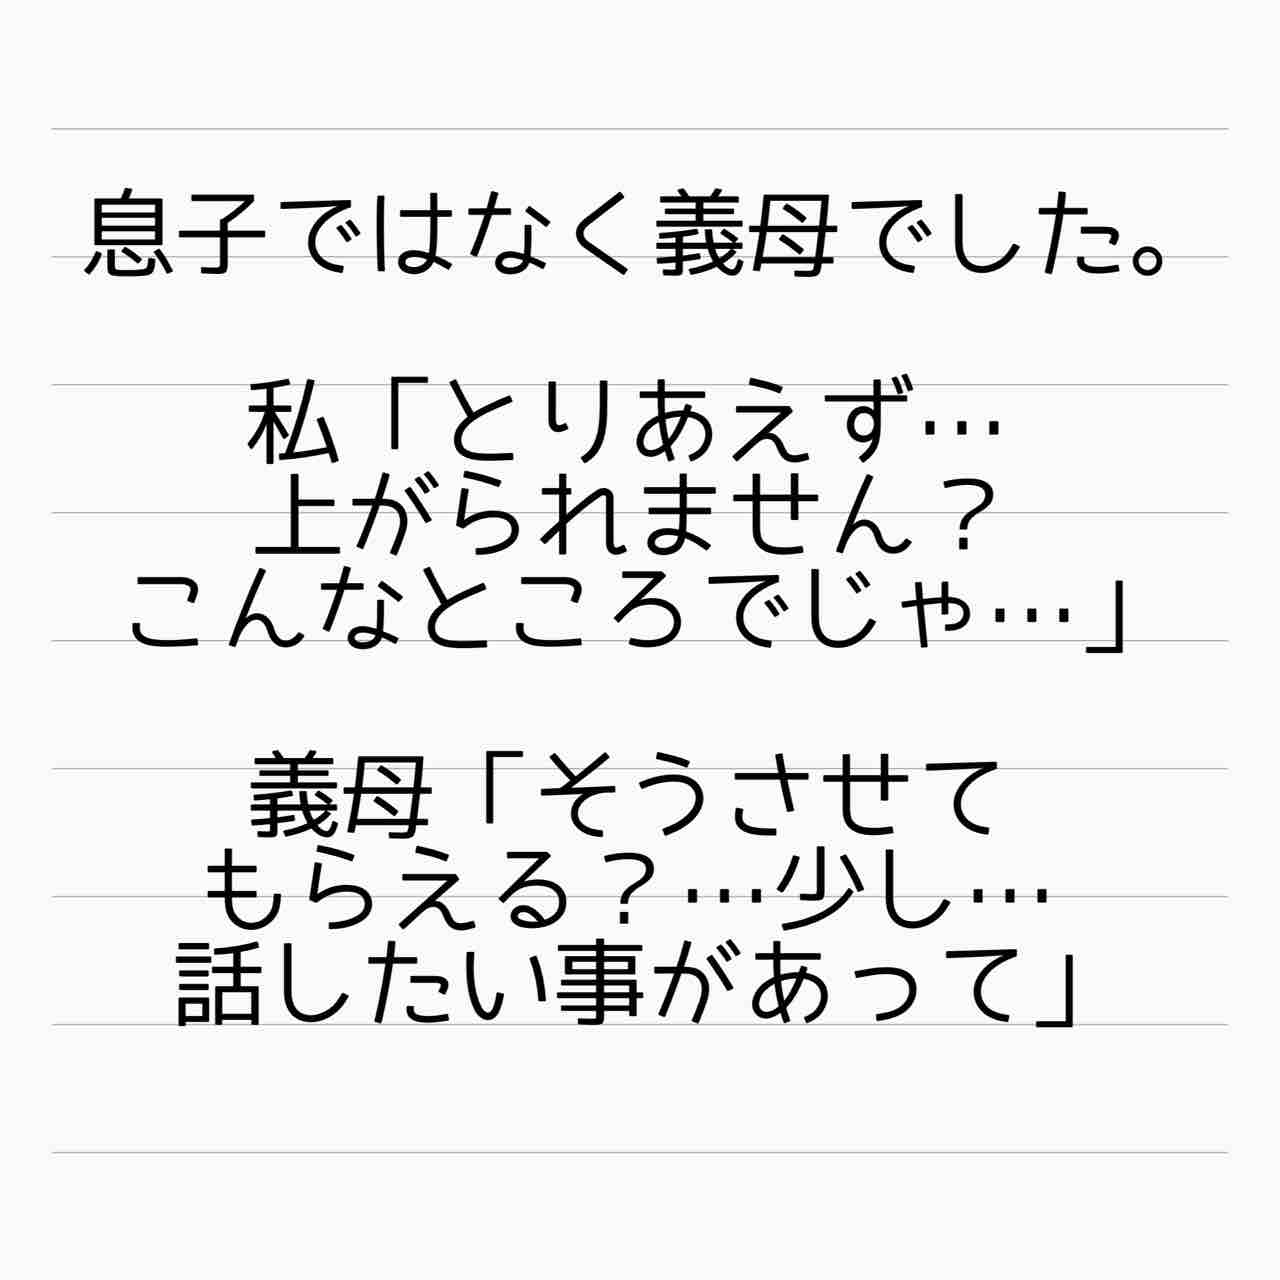 息子ではなく義母でした。
私「とりあえず…
上がられません？
こんなところでじゃ…」
義母「そうさせて
もらえる？…少し…
話したい事があって」